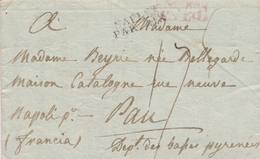 A Madame
Madame Beyrie née Bellegarde
Maison Catalogne rue neuve
Napoli p.º Pau
(francia)
Dep.t des basses pyrenees